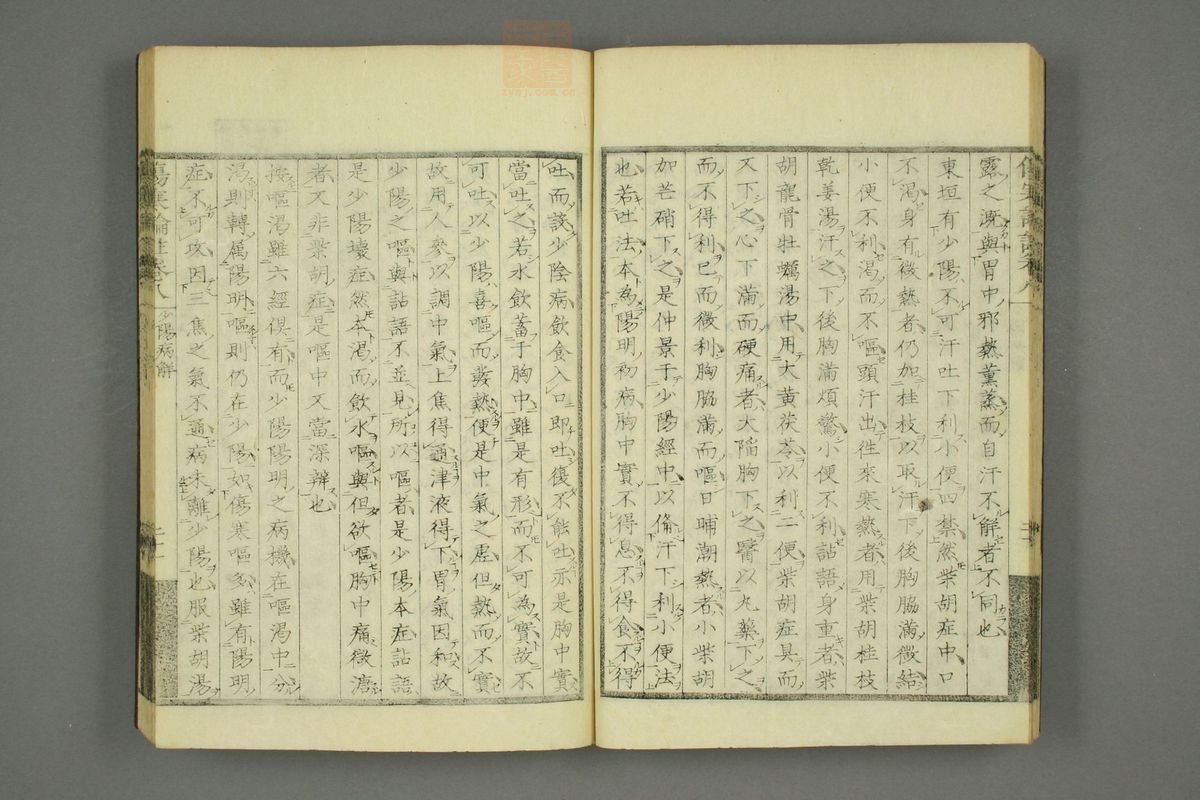 露之溉與胃中邪熱薰蒸而自汗不解者不同也
東垣有少陽不可汗吐下利小便四禁然柴胡症中口
不渴身有微熱者仍加桂枝以取汗下後胸脇滿微結
小便不利渴而不嘔頭汗出徃來寒熱者用柴胡桂枝
乾姜湯汗之下後胸滿煩驚小便不利詀語身重者柴
胡龍骨牡蠣湯中用大黃茯苓以利二便柴胡症具而
又下之心下滿而硬痛者大陷胸下之醫以丸藥下之
而不得利已而微利胸脇滿而嘔日晡潮熱者小柴胡
加芒硝下之是仲景于少陽經中以俻汗下利小便法
也若吐法本為陽明初病胸中實不得息不得食不得
吐而設少陰病飲食入口即吐復不能吐亦是胸中實
當吐之若水飲蓄于胸中雖是有形而不可為實故不
可吐以少陽喜嘔而發熱便是中氣之虛但熱而不實
故用人參以調中氣上焦得通津液得下胃氣因和故
少陽之嘔與詀語不並見所以嘔者是少陽本症詀語
是少陽壞症然本渴而飲水嘔與但欲嘔胸中痛微溏
者又非柴胡症是嘔中又當深辨也
按嘔渴雖六經俱有而少陽陽明之病機在嘔渴中分
渴則轉属陽明嘔則仍在少陽如傷寒嘔多雖有陽明
症不可攻因三焦之氣不通病未離少陽也服柴胡湯
傷寒論註卷八 少陽病解